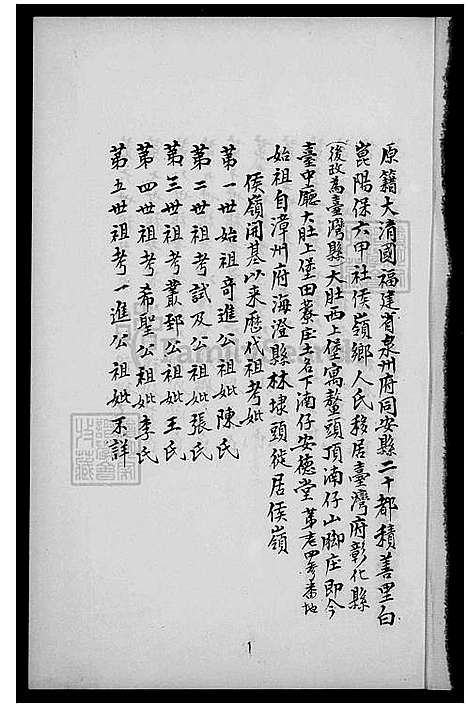 原籍大清國福建省泉州府同安縣二十都積善里白
崑陽保六甲社侯嶺鄉人民移居臺灣府彰化縣
(後改為臺灣縣)大肚西上堡寓鰲頭頂湳仔山腳庄即今
臺中廳大肚上堡田寮庄土名下湳仔安德堂第 番地
始祖自漳州府海澄縣林埭頭徙居侯嶺
侯嶺開基以来歷代祖考妣
第一世始祖奇進公祖妣陳氏
第二世祖考試及公祖妣張氏
第三世祖考叢郅公祖妣王氏
第四世祖考希聖公祖妣李氏
第五世祖考一進公祖妣不詳
1